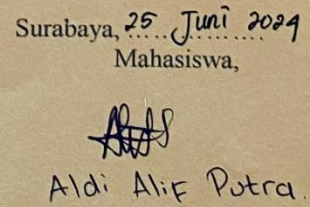 Surabaya, 25 Juni 2024
Mahasiswa,
Aldi Alif Putra.